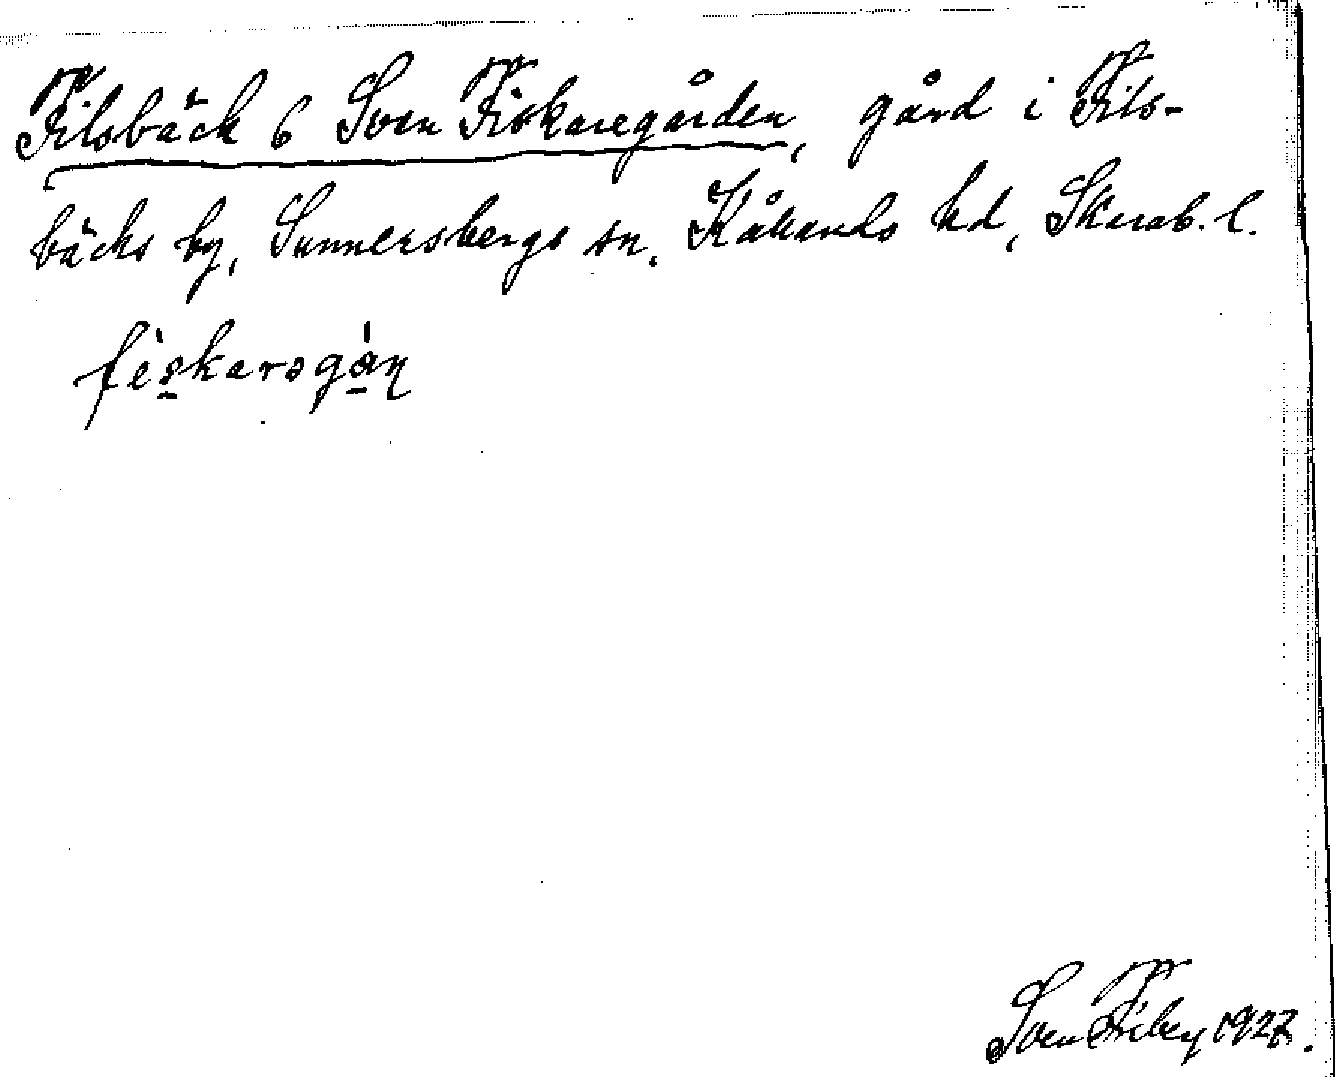 Filsbäck 6 Sven Fiskaregården, gård i Fils-
bäcks by, Sunnersbergs sn, Kållands hd, Skarab. l.
fiskarəgán
Sven Fiby 1927.